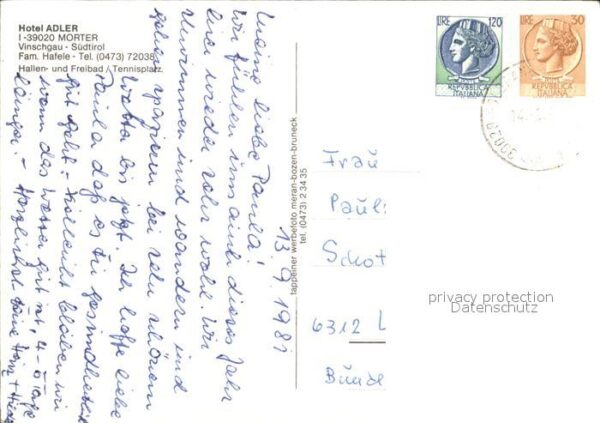 Hotel ADLER
I -39020 MORTER
Vinschgau - Südtirol
Fam. Hafele - Tel. (0473) 72038
Hallen- und Freibad / Tennisplatz
LIRE 120
REPUBBLICA
ITALIANA
LIRE 30
REPUBBLICA
ITALIANA
39020
13.9.1981
Meine liebe Paula!
Wir fühlen uns auch dieses Jahr
hier wieder sehr wohl. Wir
schwimmen und wandern und
gehen spazieren bei sehr schönem
Wetter bis jetzt. Ich hoffe liebe
Paula daß es Dir gesundheitlich
gut geht - Vielleicht bleiben wir
wenn das Wetter gut ist 4-5 Tage
länger. - Herzlichst Deine
tappeiner werbefoto meran-bozen-bruneck
tel. (0473) 2 34 35
Frau
Paul
Schot
6312 L
Bünde
privacy protection
Datenschutz